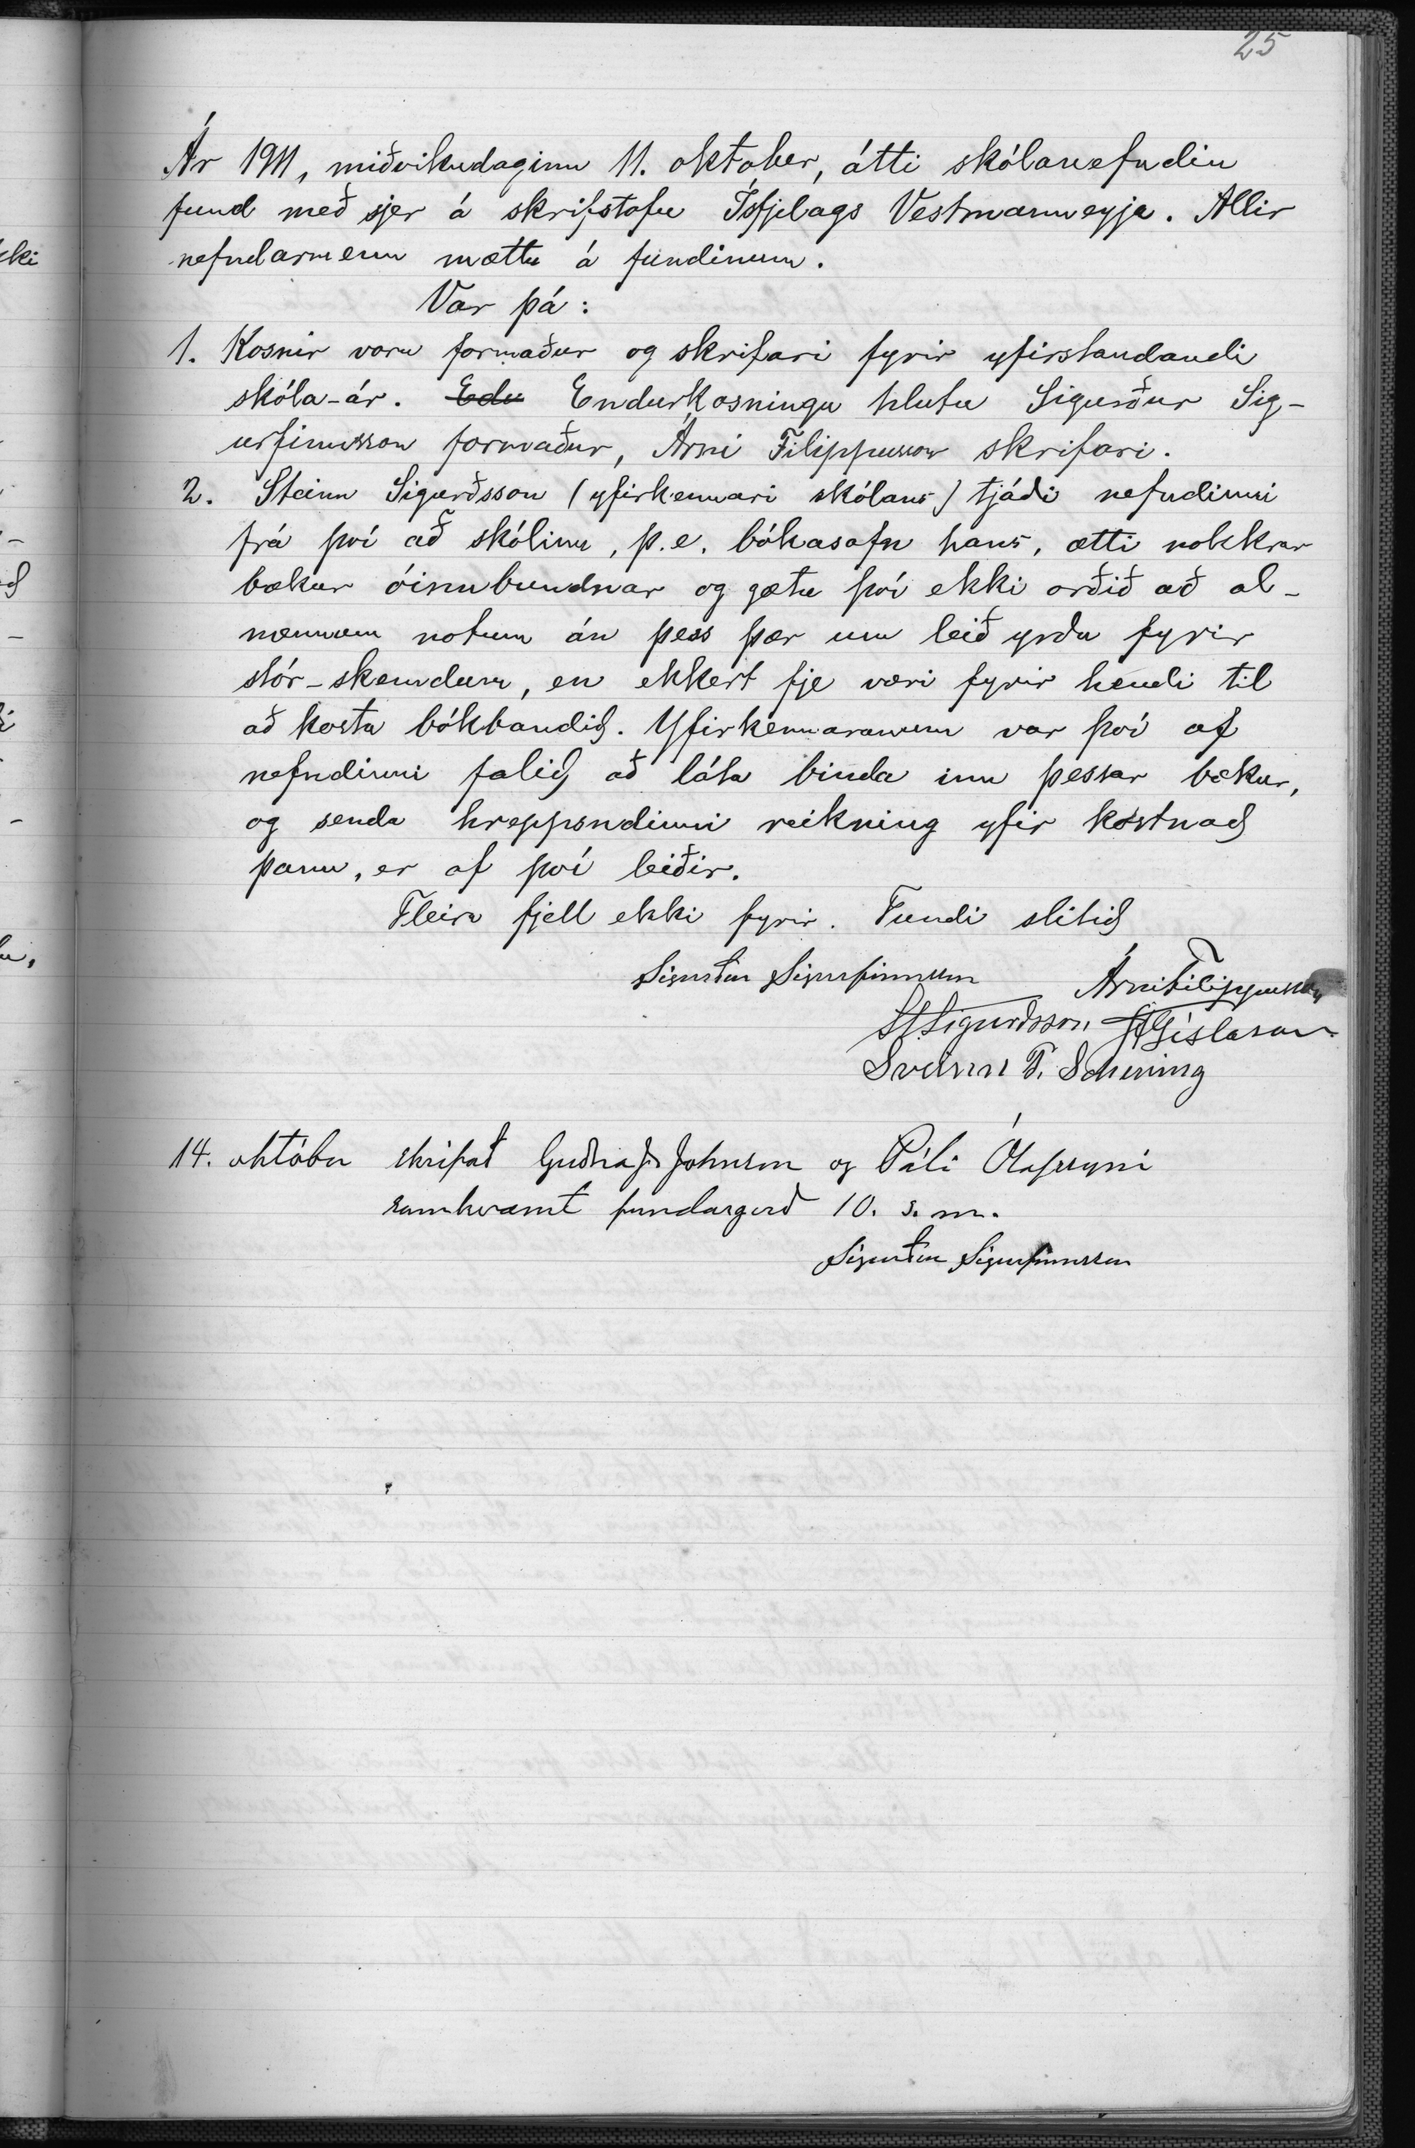 25
Ár 1911, miðvikudaginn 11. oktober, átti skólanefndin
fund með sjer á skrifstofu Ísfjelags Vestmanneyja. Allir
nefndarmenn mættu á fundinum.
Var þá:
1. Kosnir voru formaður og skrifari fyrir yfirstandandi
skóla-ár. Edu Endurkosningu hlutu Sigurður Sig-
urfinnsson formaður, Árni Filippusson skrifari.
2. Steinn Sigurðsson (yfirkennari skólans) tjáði nefndinni
frá því að skólinn, þ.e. bókasafn hans, ætti nokkrar
bækur óinnbundnar og gætu því ekki orðið að al-
mennum notum án þess þær um leið yrðu fyrir
stór-skemdum, en ekkert fje væri fyrir hendi til
að kosta bókbandið. Yfirkennaranum var því af
nefndinni falið að láta binda inn þessar bækur,
og senda hreppsndinni reikning yfir kostnað
þann, er af því leiðir.
Fleira fjell ekki fyrir. Fundi slitið
Sigurður Sigurfinnsson Árni Filippusson
St. Sigurðsson, JGíslason
Sveinn P. Scheving
14. október skrifað Guðna J. Johnsen og Páli Ólafssyni
samkvæmt fundargerð 10. s. m.
Sigurður Sigurfinnsson
ki